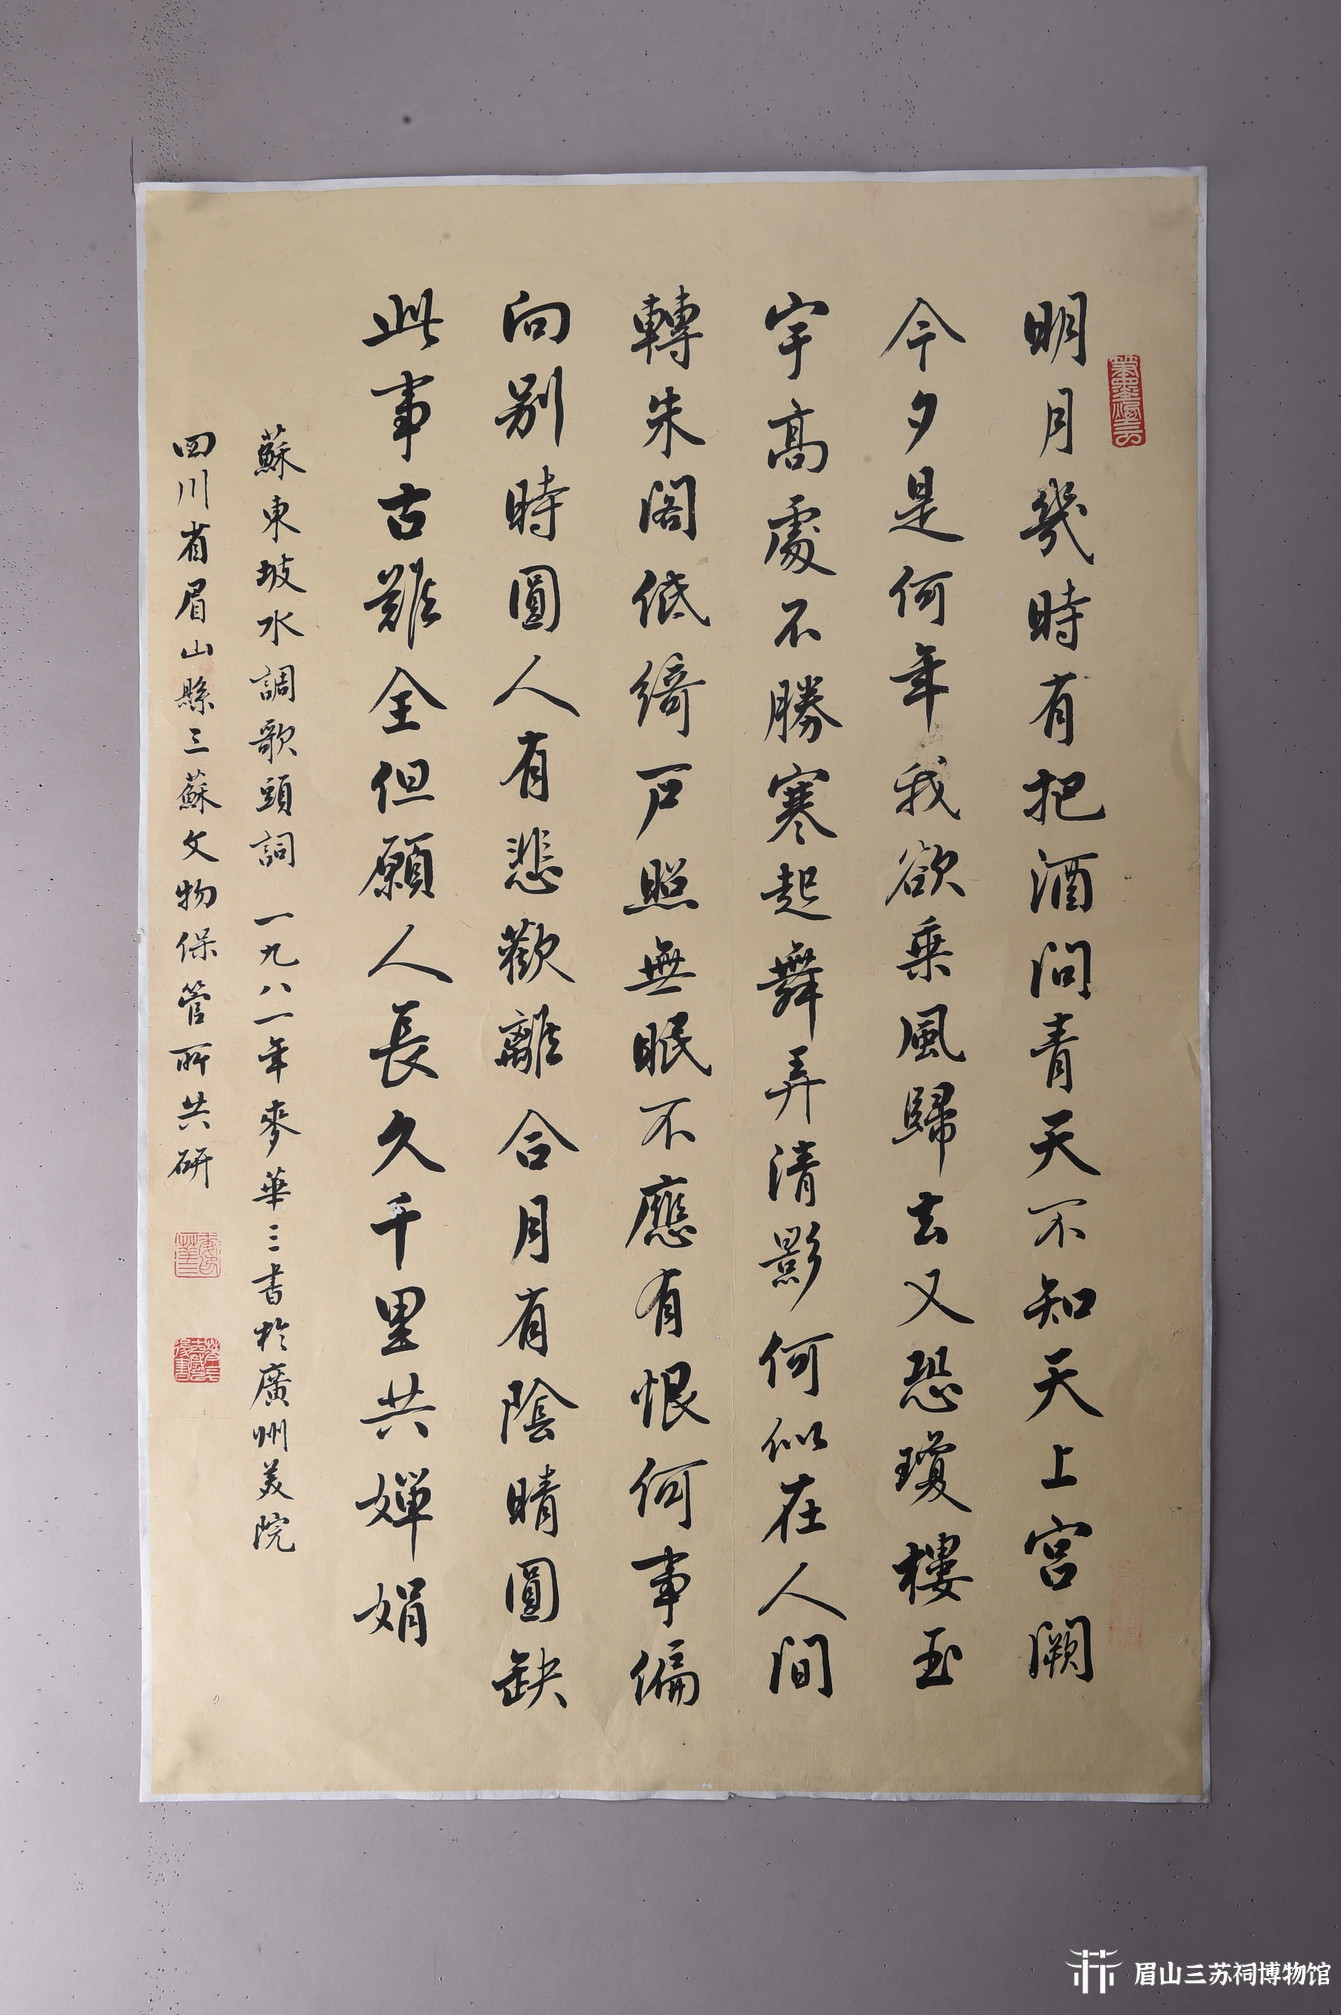 明月幾時有把酒問青天不知天上宮闕
今夕是何年我欲乘風歸去又恐瓊樓玉
宇高處不勝寒起舞弄清影何似在人間
轉朱閣低綺戶照無眠不應有恨何事偏
向別時圓人有悲歡離合月有陰晴圓缺
此事古難全但願人長久千里共嬋娟
蘇東坡水調歌頭詞 一九八一年麥華三書於廣州美院
四川省眉山縣三蘇文物保管所共研
眉山三苏祠博物馆